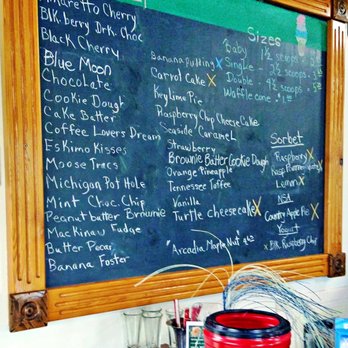 Amaretto Cherry
Blk berry Drk Choc
Black Cherry
Blue Moon
Chocolate
Cookie Dough
Cake Batter
Coffee Lovers Dream
Eskimo Kisses
Moose Tracs
Michigan Pot Hole
Mint Choc. Chip
Peanut butter Brownie
Mackinaw Fudge
Butter Pecan
Banana Foster
Banana Pudding X
Carrot Cake X
Key Lime Pie
Raspberry Chip Cheese Cake
Seaside Caramel
Strawberry
Brownie Batter Cookie Dough
Orange Pineapple
Tennessee Toffee
Vanilla
Turtle Cheesecake X
"Arcadia Maple Nut"
Sizes
Baby 1 scoops
Single 2 scoops
Double scoops
Waffle cone
Sorbet
Raspberry X
X
Lemon X
NSA
Country Apple Pie X
Yogurt
X Blk Raspberry